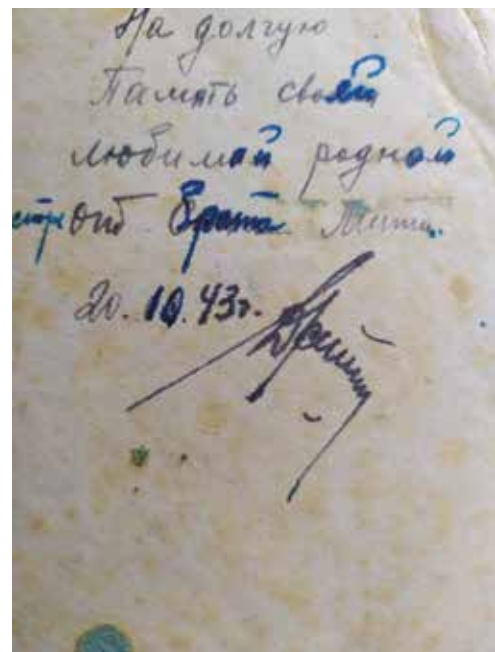 На долгую
Память своей
любимой родной
сестре от брата Мити.
20.10.43г.